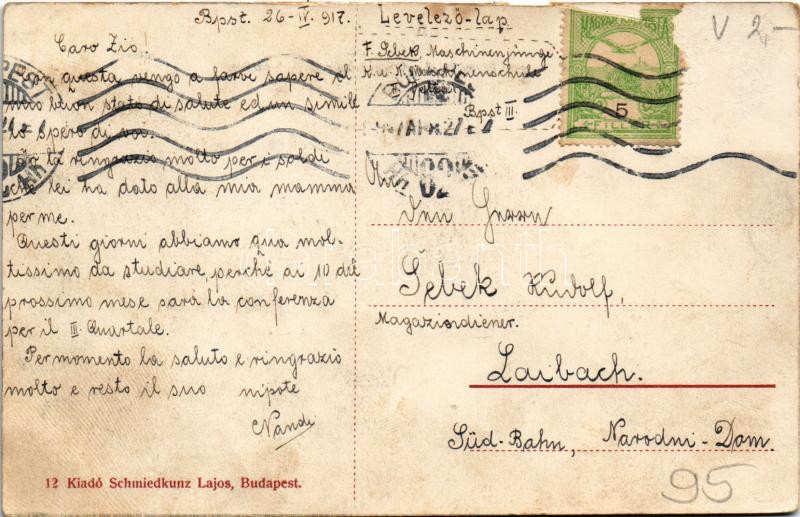 Bpst. 26-IV. 917.
Caro Zio!
Con questa vengo a farvi sapere il
mio buon stato di salute ed un simile
lo spero di voi.
Io la ringrazio molto per i soldi
che lei ha dato alla mia mamma
per me.
Questi giorni abbiamo qua mol-
tissimo da studiare, perchè ai 10 del
prossimo mese sarà la conferenza
per il III. Quartale.
Per momento la saluto e ringrazio
molto e resto il suo nipote
Nandi
12 Kiadó Schmiedkunz Lajos, Budapest.
Levelező-lap
F. Sebek, Maschinenjunge
K. u. K. Maschinenschule
Bpst III.
MAGYAR KIR. POSTA
5
FILLÉR
V 2,-
An
Herrn
Sebek Rudolf,
Magazindiener.
Laibach.
Süd-Bahn, Narodni-Dom.
95
darabanth